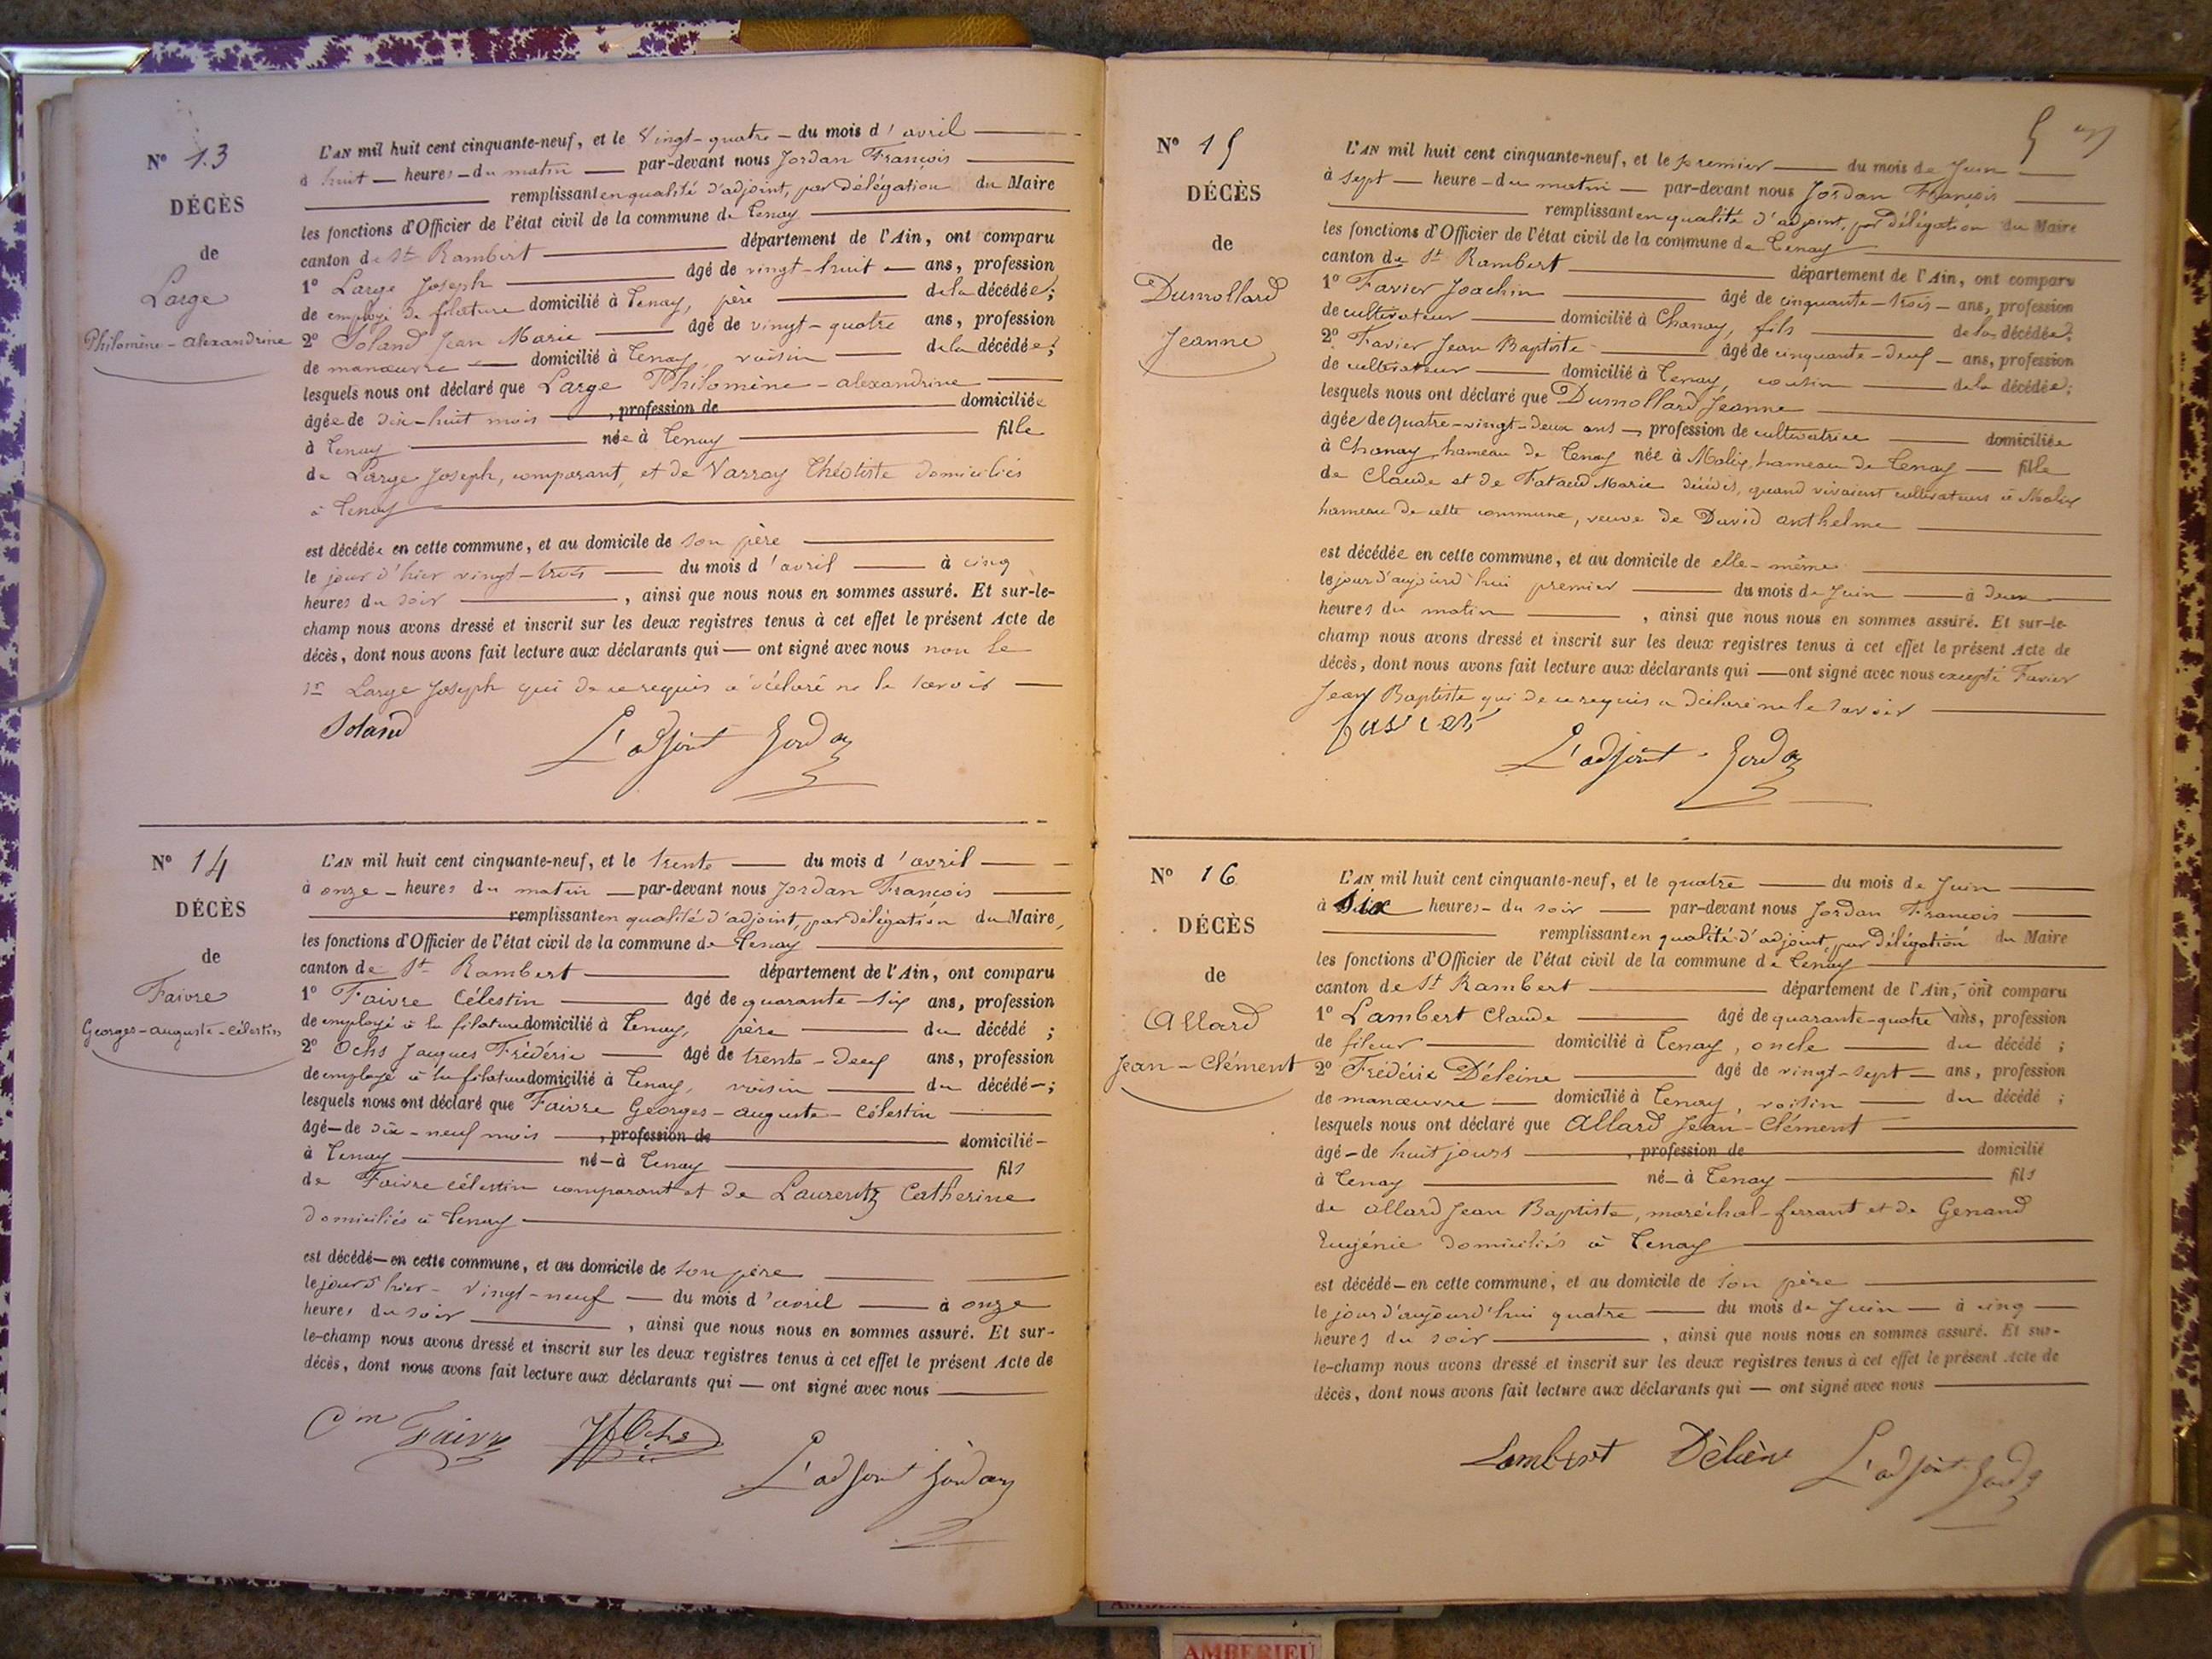 N° 13
DÉCÈS
de
Large
Philomène-alexandrine
L'AN mil huit cent cinquante-neuf, et le Vingt-quatre — du mois d'avril —
à huit — heures — du matin — par-devant nous Jordan François —
— remplissant en qualité d'adjoint, par délégation du Maire
les fonctions d'Officier de l'état civil de la commune de Tenay —
canton de St Rambert — département de l'Ain, ont comparu
1° Large Joseph — âgé de vingt-huit — ans, profession
de employé de filature domicilié à Tenay, père — de la décédée;
2° Soland Jean Marie — âgé de vingt-quatre ans, profession
de manœuvre — domicilié à Tenay, voisin — de la décédée;
lesquels nous ont déclaré que Large Philomène-alexandrine —
âgée de dix-huit mois —, profession de — domiciliée
à Tenay — née à Tenay — fille
de Large Joseph, comparant, et de Varray Théotiste domiciliés
à Tenay —
est décédée en cette commune, et au domicile de son père —
le jour d'hier vingt-trois — du mois d'avril — à cinq
heures du soir —, ainsi que nous nous en sommes assuré. Et sur-le-
champ nous avons dressé et inscrit sur les deux registres tenus à cet effet le présent Acte de
décès, dont nous avons fait lecture aux déclarants qui — ont signé avec nous non le
sr Large Joseph qui de ce requis a déclaré ne le savoir —
Soland L'adjoint Jordan
N° 14
DÉCÈS
de
Faivre
Georges-auguste-célestin
L'AN mil huit cent cinquante-neuf, et le trente — du mois d'avril —
à onze — heures du matin — par-devant nous Jordan François —
— remplissant en qualité d'adjoint, par délégation du Maire,
les fonctions d'Officier de l'état civil de la commune de Tenay —
canton de St Rambert — département de l'Ain, ont comparu
1° Faivre Célestin — âgé de quarante-six ans, profession
de employé à la filature domicilié à Tenay, père — du décédé;
2° Ochs Jacques Frédéric — âgé de trente-deux ans, profession
de employé à la filature domicilié à Tenay, voisin — du décédé —;
lesquels nous ont déclaré que Faivre Georges-auguste-célestin —
âgé — de dix-neuf mois —, profession de — domicilié —
à Tenay — né — à Tenay — fils
de Faivre célestin comparant et de Laurentz Catherine
domiciliés à Tenay —
est décédé — en cette commune, et au domicile de son père —
le jour d'hier — vingt-neuf — du mois d'avril — à onze
heures du soir —, ainsi que nous nous en sommes assuré. Et sur-
le-champ nous avons dressé et inscrit sur les deux registres tenus à cet effet le présent Acte de
décès, dont nous avons fait lecture aux déclarants qui — ont signé avec nous —
Cin Faivre JfOchs
L'adjoint Jordan
5
N° 15
DÉCÈS
de
Dumollard
Jeanne
L'AN mil huit cent cinquante-neuf, et le premier — du mois de Juin —
à sept — heure — du matin — par-devant nous Jordan François —
— remplissant en qualité d'adjoint, par délégation du Maire
les fonctions d'Officier de l'état civil de la commune de Tenay —
canton de St Rambert — département de l'Ain, ont comparu
1° Favier Joachin — âgé de cinquante-trois — ans, profession
de cultivateur — domicilié à Chanay, fils — de la décédée;
2° Favier Jean Baptiste — âgé de cinquante-deux — ans, profession
de cultivateur — domicilié à Tenay, cousin — de la décédée;
lesquels nous ont déclaré que Dumollard Jeanne —
âgée de quatre-vingt-deux ans —, profession de cultivatrice — domiciliée
à Chanay, hameau de Tenay née à Malix, hameau de Tenay — fille
de Claude et de Fataud Marie décédés, quand vivaient cultivateurs à Malix
hameau de cette commune, veuve de David anthelme —
est décédée en cette commune, et au domicile de elle-même —
le jour d'aujourd'hui premier — du mois de Juin — à deux —
heures du matin —, ainsi que nous nous en sommes assuré. Et sur-le-
champ nous avons dressé et inscrit sur les deux registres tenus à cet effet le présent Acte de
décès, dont nous avons fait lecture aux déclarants qui — ont signé avec nous excepté Favier
Jean Baptiste qui de ce requis a déclaré ne le savoir —
L'adjoint Jordan
N° 16
DÉCÈS
de
Allard
Jean-Clément
L'AN mil huit cent cinquante-neuf, et le quatre — du mois de Juin —
à Six heures — du soir — par-devant nous Jordan François —
— remplissant en qualité d'adjoint, par délégation du Maire
les fonctions d'Officier de l'état civil de la commune de Tenay —
canton de St Rambert — département de l'Ain, ont comparu
1° Lambert Claude — âgé de quarante-quatre ans, profession
de fileur — domicilié à Tenay, oncle — du décédé;
2° Frédéric Déleine — âgé de vingt-sept — ans, profession
de manœuvre — domicilié à Tenay, voisin — du décédé;
lesquels nous ont déclaré que Allard Jean-Clément —
âgé — de huit jours —, profession de — domicilié
à Tenay — né — à Tenay — fils
de allard Jean Baptiste, maréchal-ferrant et de Genand
Eugénie domiciliés à Tenay —
est décédé — en cette commune, et au domicile de son père —
le jour d'aujourd'hui quatre — du mois de Juin — à cinq —
heures du soir —, ainsi que nous nous en sommes assuré. Et sur-
le-champ nous avons dressé et inscrit sur les deux registres tenus à cet effet le présent Acte de
décès, dont nous avons fait lecture aux déclarants qui — ont signé avec nous —
Lambert L'adjoint Jordan
AMBERIEU